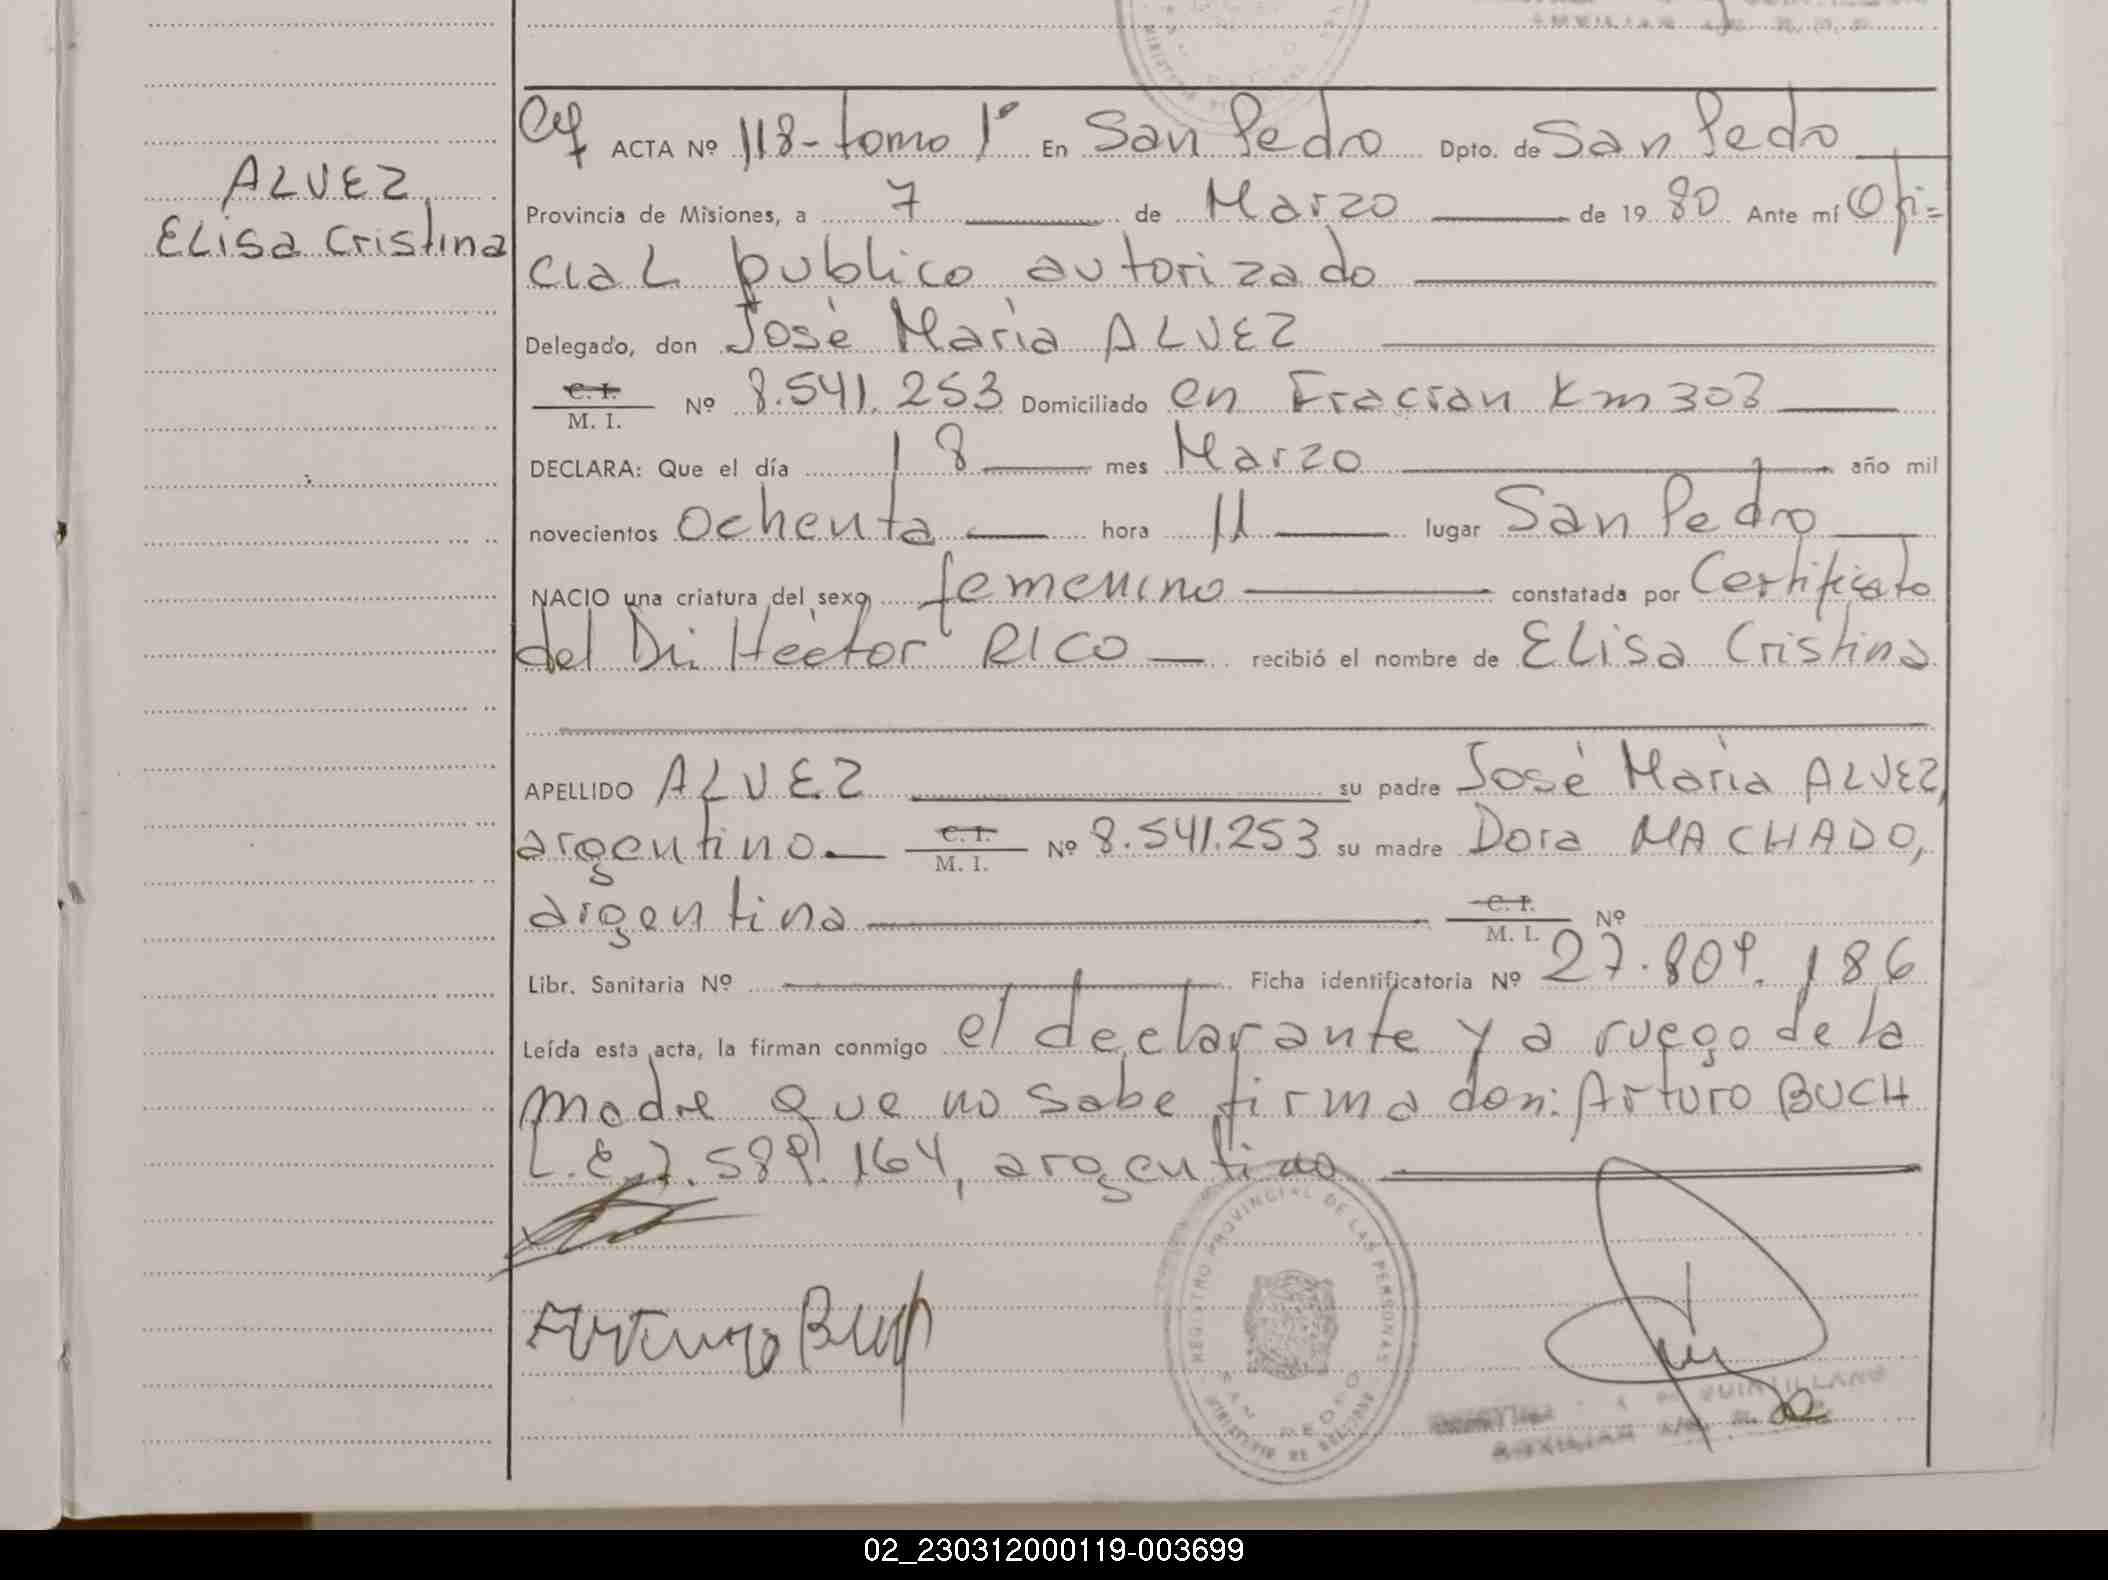 ALVEZ
ELisa Cristina
ACTA Nº 118-tomo 1º En San Pedro Dpto. de San Pedro
Provincia de Misiones, a 7 de Marzo de 19 80 Ante mí Ofi=
ciaL publico autorizado
Delegado, don José María ALVEZ
C. I.
M. I. Nº 8.541.253 Domiciliado en Fracran Km 303
DECLARA: Que el día 1 8 mes Marzo año mil
novecientos ochenta hora 11 lugar San Pedro
NACIO una criatura del sexo femenino constatada por Certificato
del Dr. Héctor RICO recibió el nombre de ELisa Cristina
APELLIDO ALVEZ su padre José María ALVEZ,
argentino C. I.
M. I. Nº 8.541.253 su madre Dora MACHADO,
argentina C. I.
M. I. Nº
Libr. Sanitaria Nº Ficha identificatoria Nº 27.809.186
Leída esta acta, la firman conmigo el declarante y a ruego de la
madre que no sabe firma don: Arturo BUCH
L.E.7.589.164, argentino
Arturo Buch
REGISTRO PROVINCIAL DE LAS PERSONAS
SAN PEDRO
MINISTERIO DE
QUINTILLANO
AUXILIAR
02_230312000119-003699